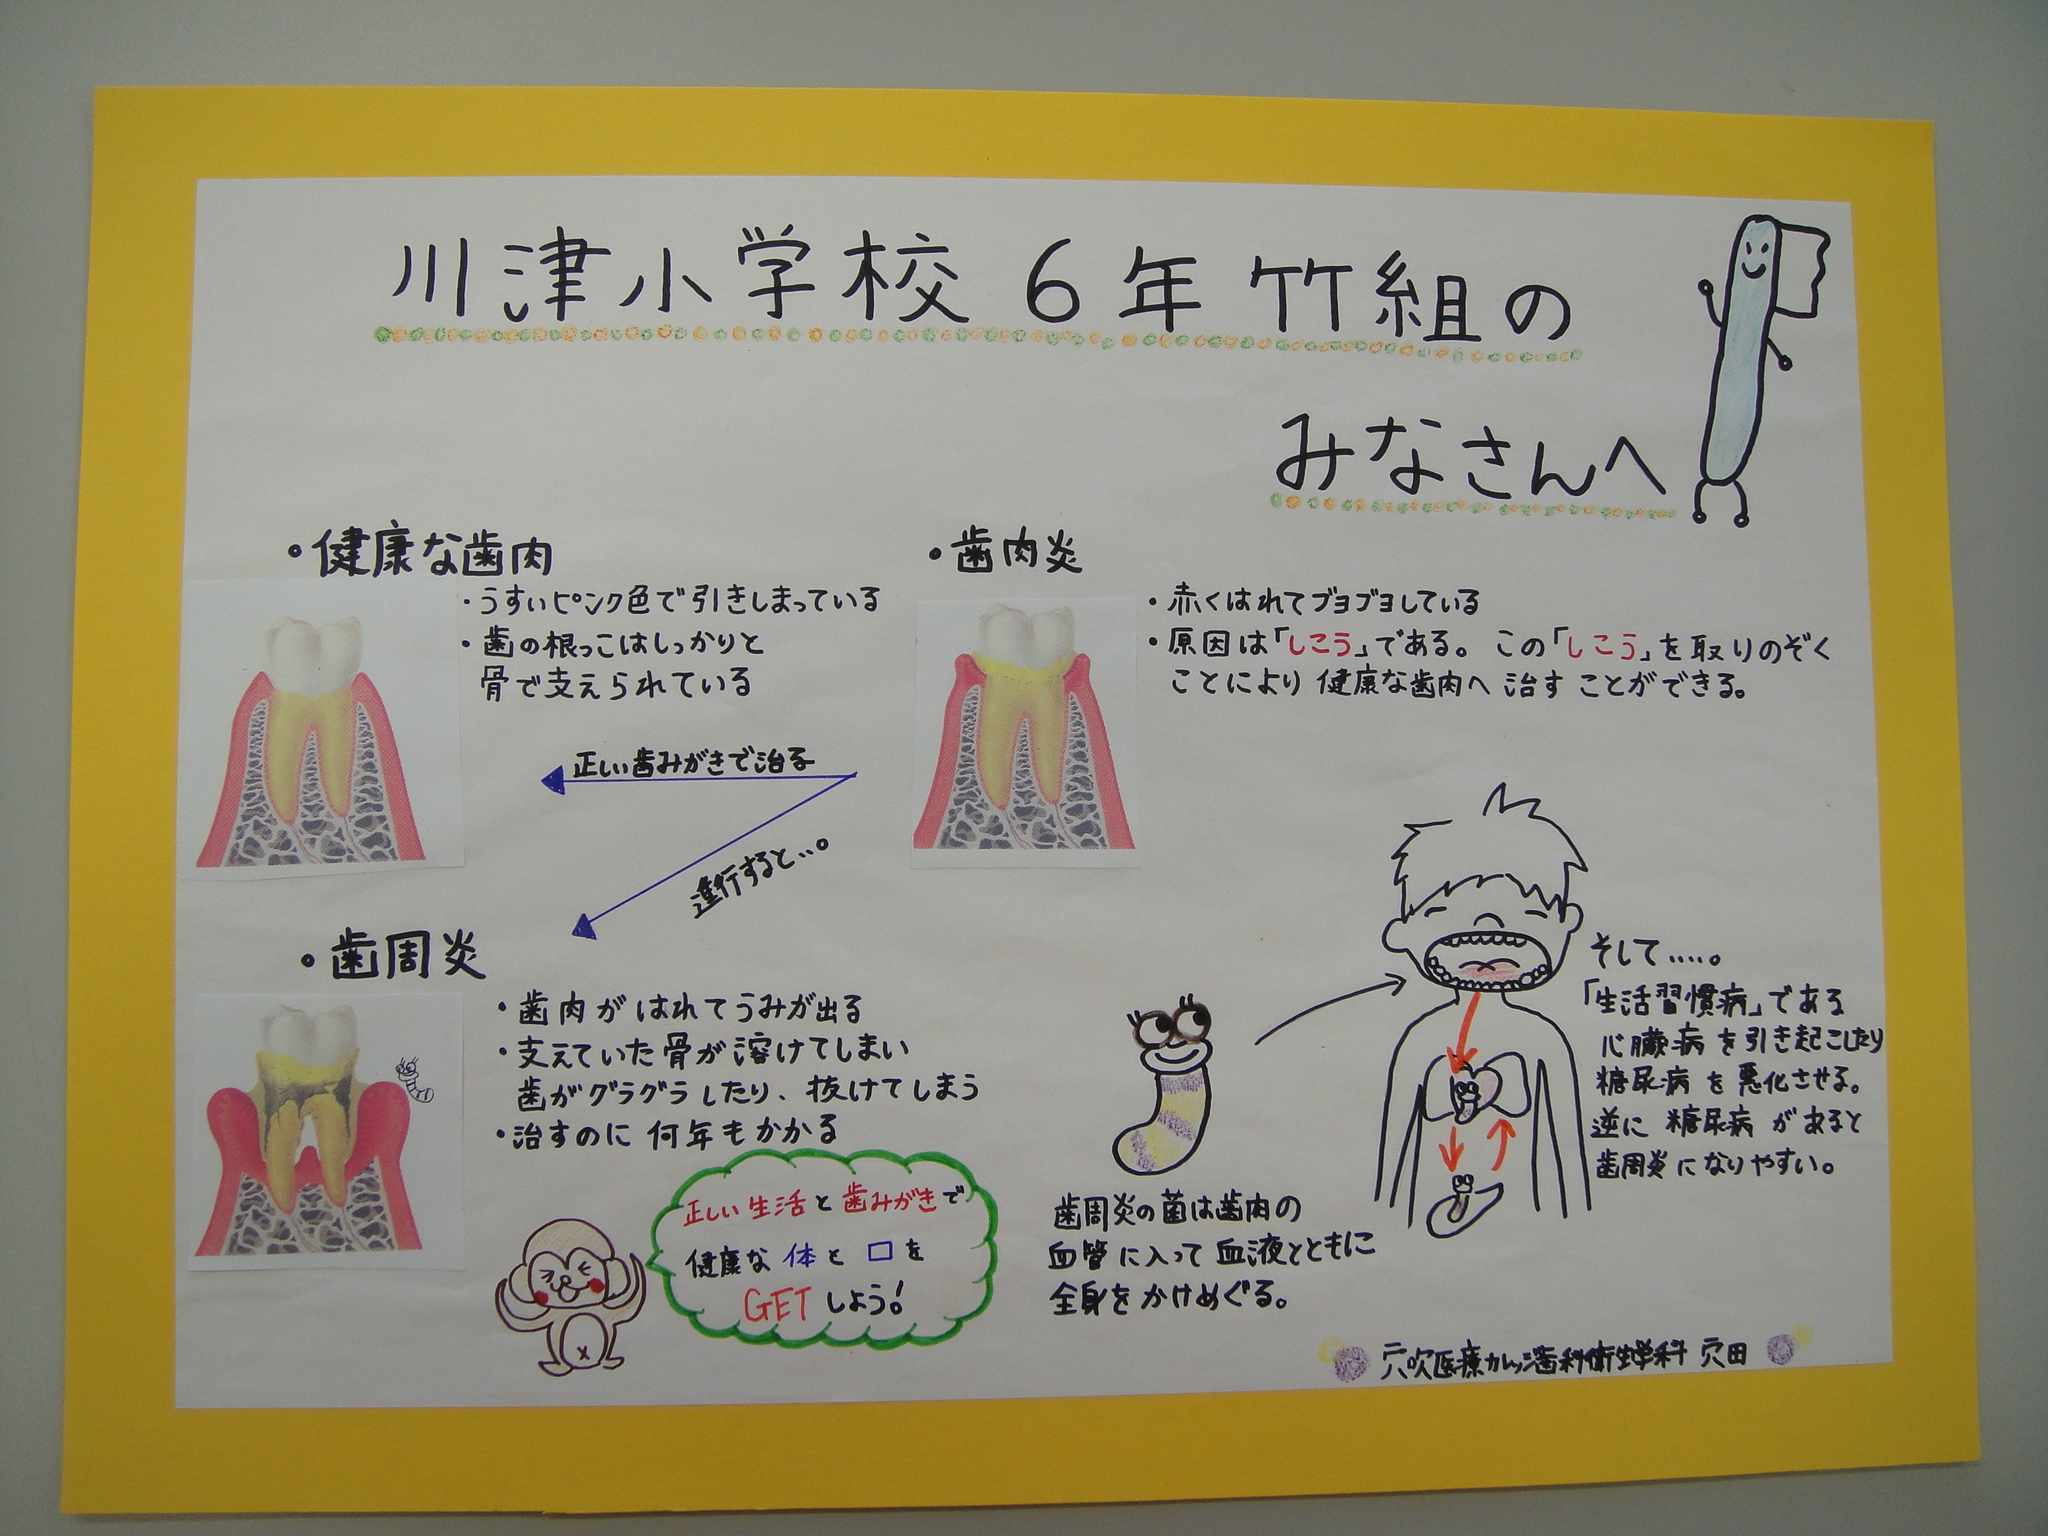 川津小学校 6年 竹組の
みなさんへ
・健康な歯肉
・うすいピンク色で引きしまっている
・歯の根っこはしっかりと
骨で支えられている
・歯肉炎
・赤くはれてブヨブヨしている
・原因は「しこう」である。この「しこう」を取りのぞく
ことにより健康な歯肉へ治すことができる。
正しい歯みがきで治る
進行すると…。
・歯周炎
・歯肉がはれてうみが出る
・支えていた骨が溶けてしまい
歯がグラグラしたり、抜けてしまう
・治すのに何年もかかる
正しい生活と歯みがきで
健康な体と口を
GETしよう!
歯周炎の菌は歯肉の
血管に入って血液とともに
全身をかけめぐる。
そして.....。
「生活習慣病」である
心臓病を引き起こしたり
糖尿病を悪化させる。
逆に糖尿病があると
歯周炎になりやすい。
穴吹医療カレッジ歯科衛生学科 穴田